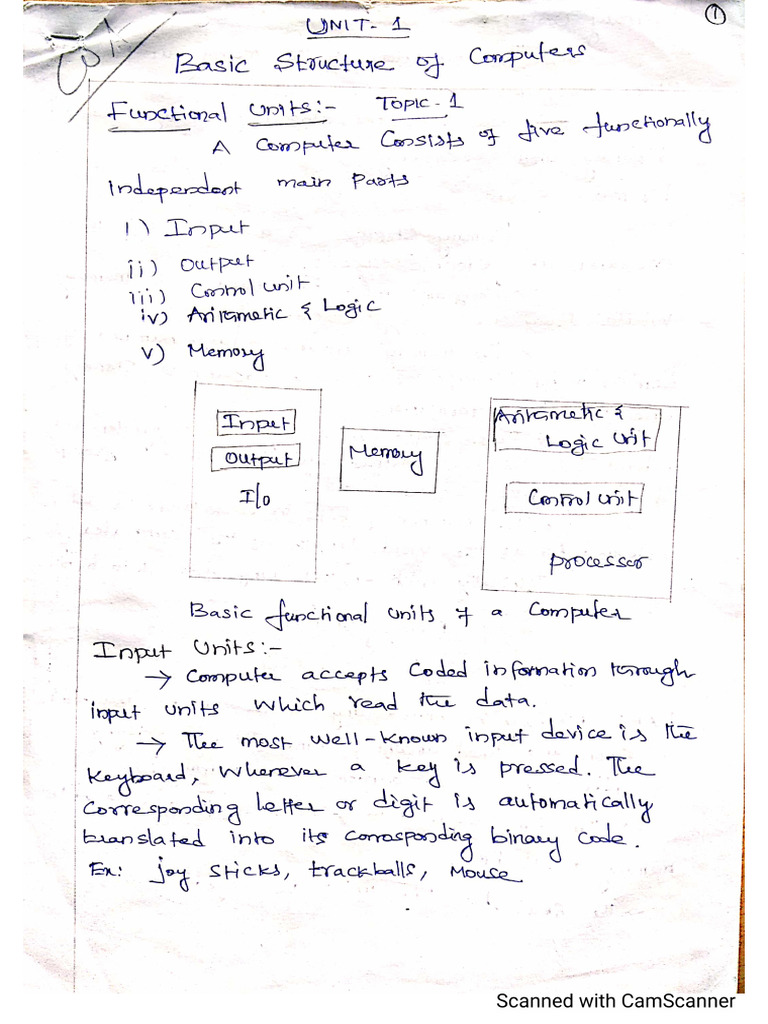 1
UNIT-1
Basic Structure of Computers
Functional Units:- Topic-1
A Computer Consists of five functionally
Independent main Parts
i) Input
ii) Output
iii) Control unit
iv) Arirtmetic & Logic
v) Memory
Input
Output
I/o
Memory
Arirtmetic &
Logic Unit
Control unit
processor
Basic functional units of a Computer
Input Units:-
→ Computer accepts Coded information through
input units which read the data.
→ The most well-known input device is the
Keyboard, Whenever a key is pressed. The
Corresponding letter or digit is automatically
translated into its corrosponding binary code.
Ex: joy sticks, trackballs, Mouse
Scanned with CamScanner